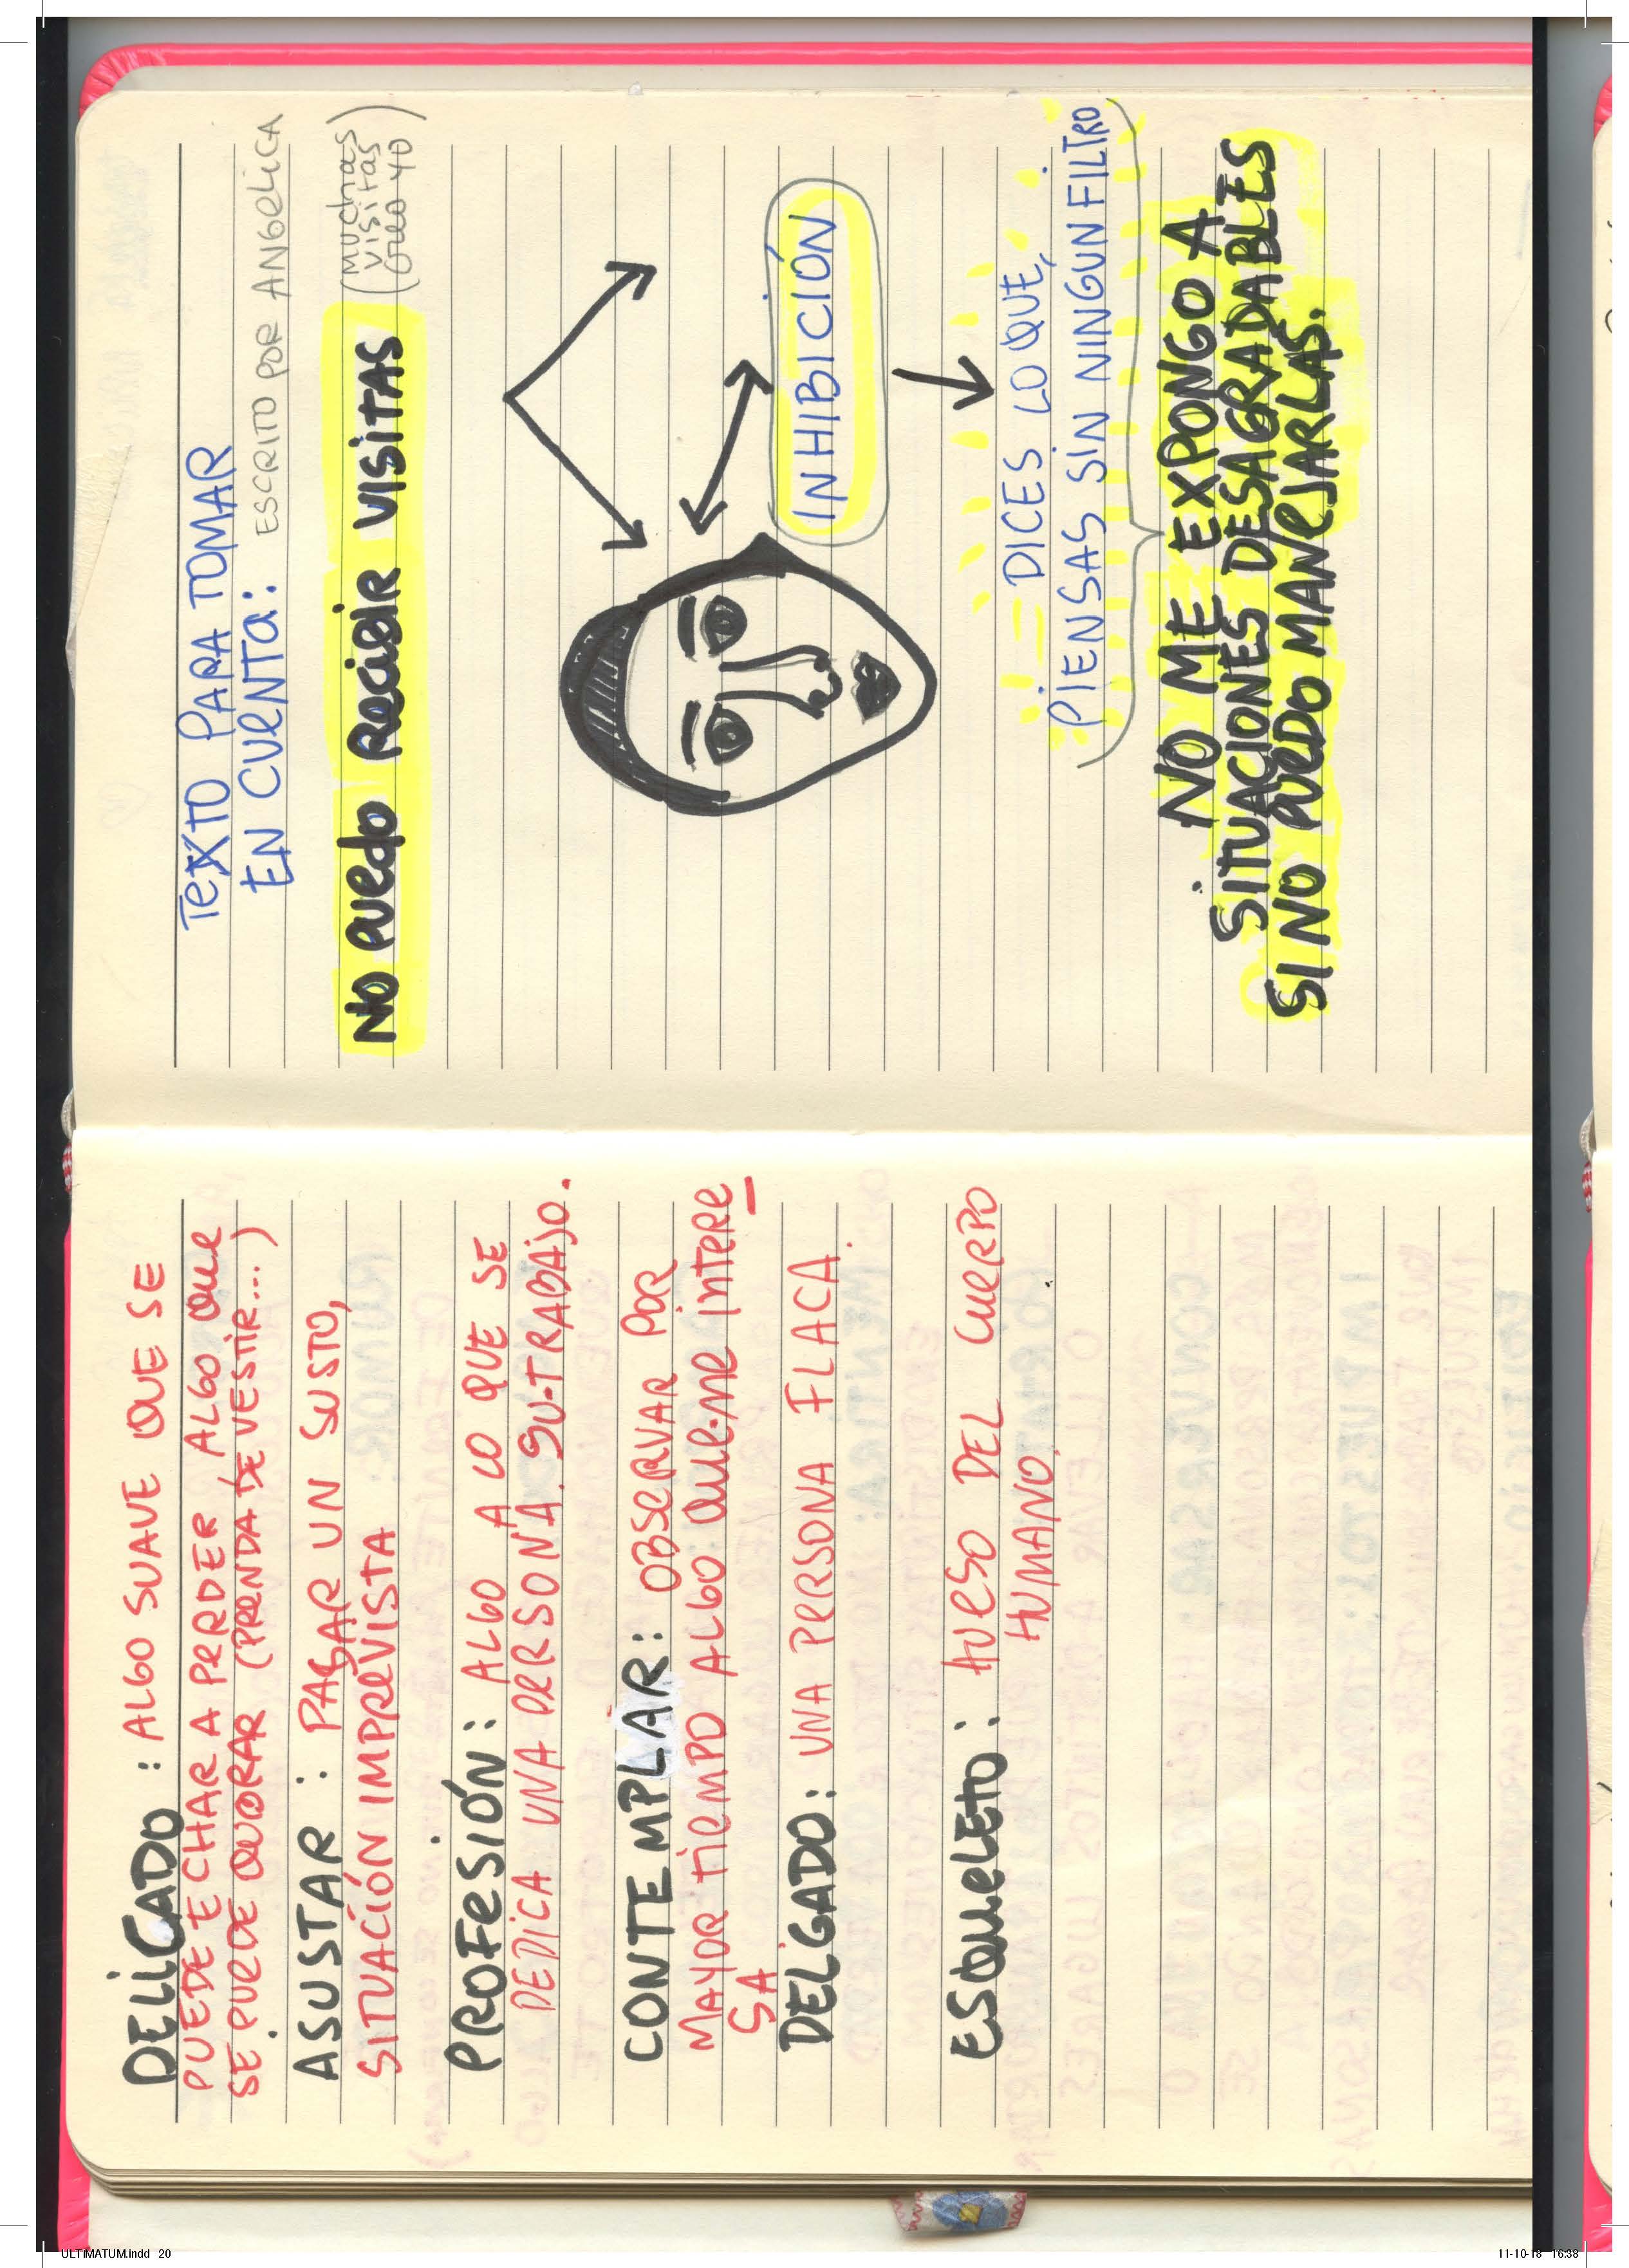 DELiCADO : ALGO SUAVE QUE SE
PUEDE ECHAR A PERDER, ALGO QUE
SE PUEDE QUEBRAR (PRENDA DE VESTIR...)
ASUSTAR : PASAR UN SUSTO,
SITUACIÓN IMPREVISTA
PROFESIÓN : ALGO A LO QUE SE
DEDICA UNA PERSONA. SU TRABAJO.
CONTEMPLAR: OBSERVAR POR
MAYOR TIEMPO ALGO QUE ME INTERE
SA
DELGADO: UNA PERSONA FLACA.
ESQUELETO: HUESO DEL CUERPO
HUMANO.
TEXTO PARA TOMAR
EN CUENTA: ESCRITO POR ANGELICA
NO PUEDO RECIBIR VISITAS (MUCHAS
VISITAS
CREO 40)
INHIBICIÓN
= DICES LO QUE,
PIENSAS SIN NINGUN FILTRO
NO ME EXPONGO A
SITUACIONES DESAGRADABLES
SI NO PUEDO MANEJARLAS.
ULTIMATUM.indd 20
11-10-18 16:38